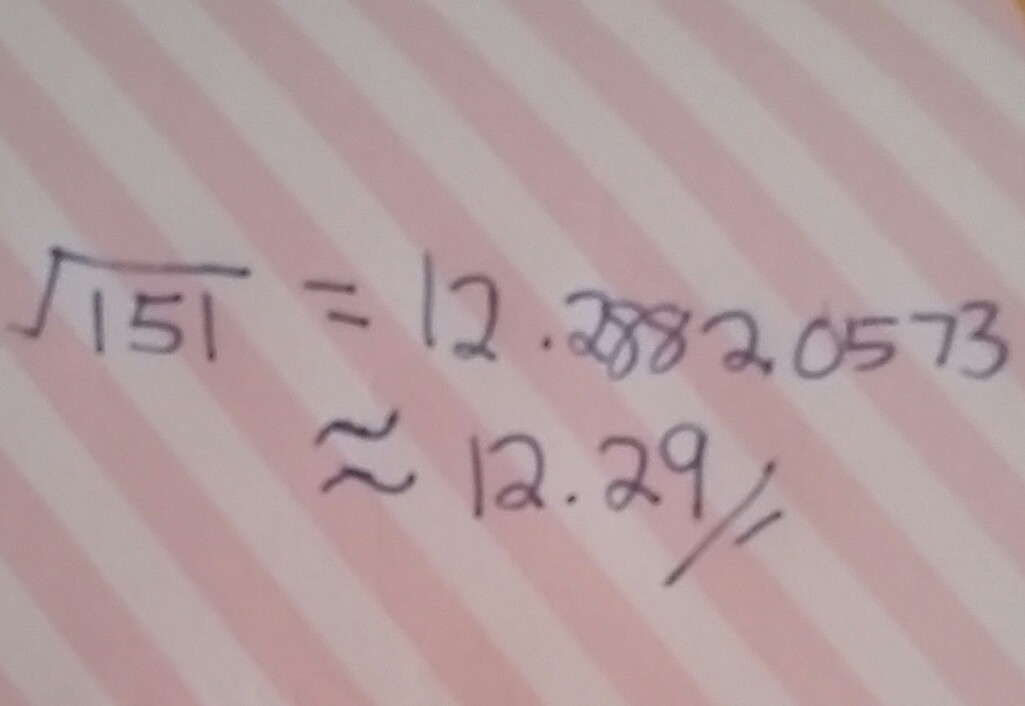 √151 = 12.28820573
≈ 12.29